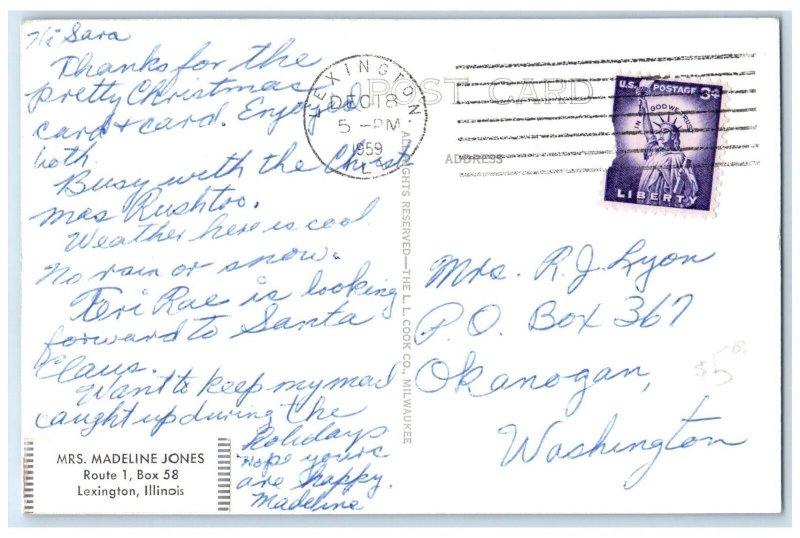 Hi Sara
Thanks for the
pretty Christmas
card + card. Enjoyed
both.
Busy with the Christ
mas Rush too.
Weather here is cool
no rain or snow.
Teri Rae is looking
forward to Santa
Claus.
Want to keep my mail
caught up during the
holidays
Hope yours
are happy.
Madeline
MRS. MADELINE JONES
Route 1, Box 58
Lexington, Illinois
POST CARD
ADDRESS
ALL RIGHTS RESERVED—THE L. L. COOK CO., MILWAUKEE
LEXINGTON
DEC 18
5 - PM
1959
U.S. POSTAGE 3¢
IN GOD WE TRUST
LIBERTY
Mrs. R. J. Lyon
P.O. Box 367
Okanogan,
Washington
$5